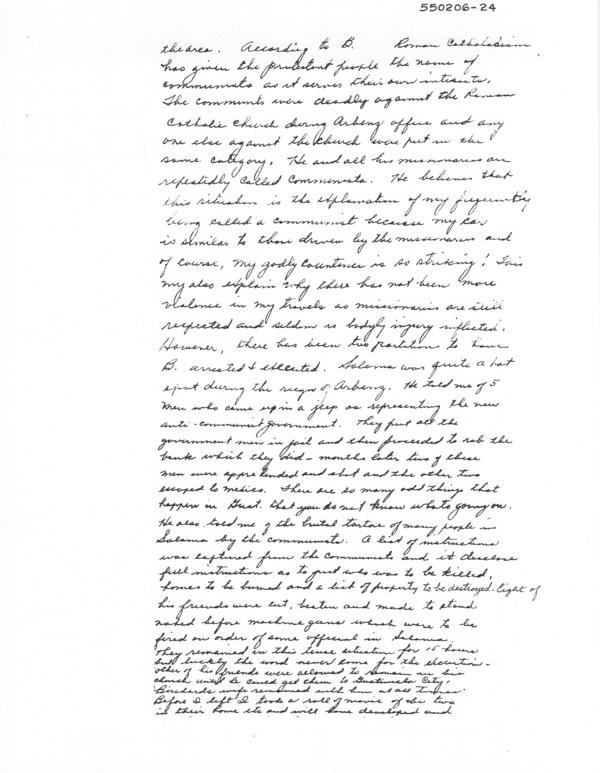 550206-24
the area. According to B. Roman Catholocism
has given the protestent people the name of
communists as it serves their own intrests.
The communts were deadly against the Roman
Catholic Church during Arbenz office and any
one else against the church were put in the
same category. He and all his missionaries are
repeatedly called Communists. He believes that
this situation is the explanation of my frequently
being called a communist because my car
is similar to those driven by the missionaries and
of course, my godly countence is so striking! This
may also explain why there has not been more
violence in my travels as missionaries are still
respected and seldom is bodyly injury inflicted.
However, there has been two partitions to have
B. arrested & executed. Salama was quite a hot
spot during the reign of Arbenz. He told me of 5
men who came up in a jeep as representing the new
anti-communist government. They put all the
government men in jail and then proceeded to rob the
bank which they did - months later two of these
men were apprehended and shot and the other two
escaped to Mexico. There are so many odd things that
happen in Guat. that you do not know whats going on.
He also told me of the brutal tortue of many people in
Salama by the communists. A list of instructions
was captured from the Communists and it disclose
full instructions as to just who was to be killed,
homes to be burned and a list of property to be destroyed. Eight of
his friends were cut, beaten and made to stand
naked before machine guns which were to be
fired on order of some official in Salama
They remained in this tense situation for 15 hours
but luckly the word never came for the execution -
other of his friends were allowed to remain in his
church until he could get them to Guatemala City.
wife remained with him at all times.
Before I left I took a roll of movie of the two
in their home etc and will have developed and